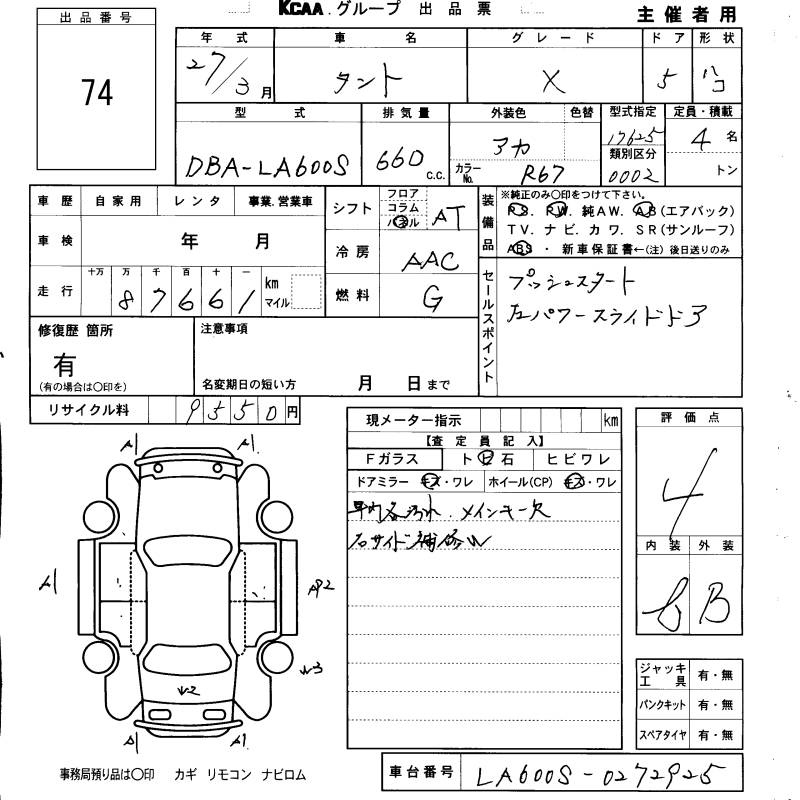 KCAA.グループ 出品票
主催者用
出品番号
74
年式 車名 グレード ドア 形状
27/3月 タント X 5 ハコ
型式 排気量 外装色 色替 型式指定 定員・積載
DBA-LA600S 660 c.c. アカ カラーNo. R67 17625 類別区分 0002 4名 トン
車歴 自家用 レンタ 事業.営業車
シフト フロア コラム パネル AT
装備品 ※純正のみ○印をつけて下さい。
PS. PW. 純AW. AB(エアバック)
TV. ナビ. カワ. SR(サンルーフ)
ABS・新車保証書←(注)後日送りのみ
車検 年 月
冷房 AAC
走行 十万 万 千 百 十 一
87661 km マイル
燃料 G
セールスポイント
プッシュスタート
左パワースライドドア
修復歴 箇所
有
(有の場合は○印を)
注意事項
名変期日の短い方 月 日まで
リサイクル料 9550円
現メーター指示 km
【査定員記入】
Fガラス ト ビ 石 ヒビワレ
ドアミラー キズ・ワレ ホイール(CP) キズ・ワレ
メインキー欠
評価点
4
内装 外装
B
A1 A1
A1
AP2
W3
W2
A1 A1
ジャッキ工具 有・無
パンクキット 有・無
スペアタイヤ 有・無
事務局預り品は○印 カギ リモコン ナビロム
車台番号 LA600S-0272925